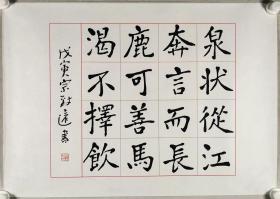 渴鹿奔泉
不可言状
擇善而從
飲馬長江
戊寅宗遠書